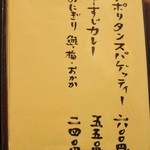 ポリタンスパゲッティー 六〇〇円
すじカレー 五五〇円
おにぎり 鮭・梅・おかか 二四〇円